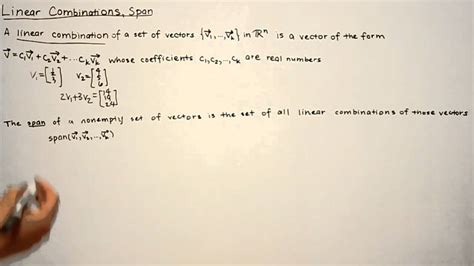 Linear Combinations, Span
A linear combination of a set of vectors {v⃗₁,...,v⃗ₖ} in ℝⁿ is a vector of the form
v⃗ = c₁v⃗₁ + c₂v⃗₂ + ... cₖv⃗ₖ whose coefficients c₁, c₂,..., cₖ are real numbers
v₁ = [1 2 3] v₂ = [4 5 6]
2v₁ + 3v₂ = [14 19 24]
The span of a nonempty set of vectors is the set of all linear combinations of those vectors
span(v⃗₁, v⃗₂,..., v⃗ₖ)